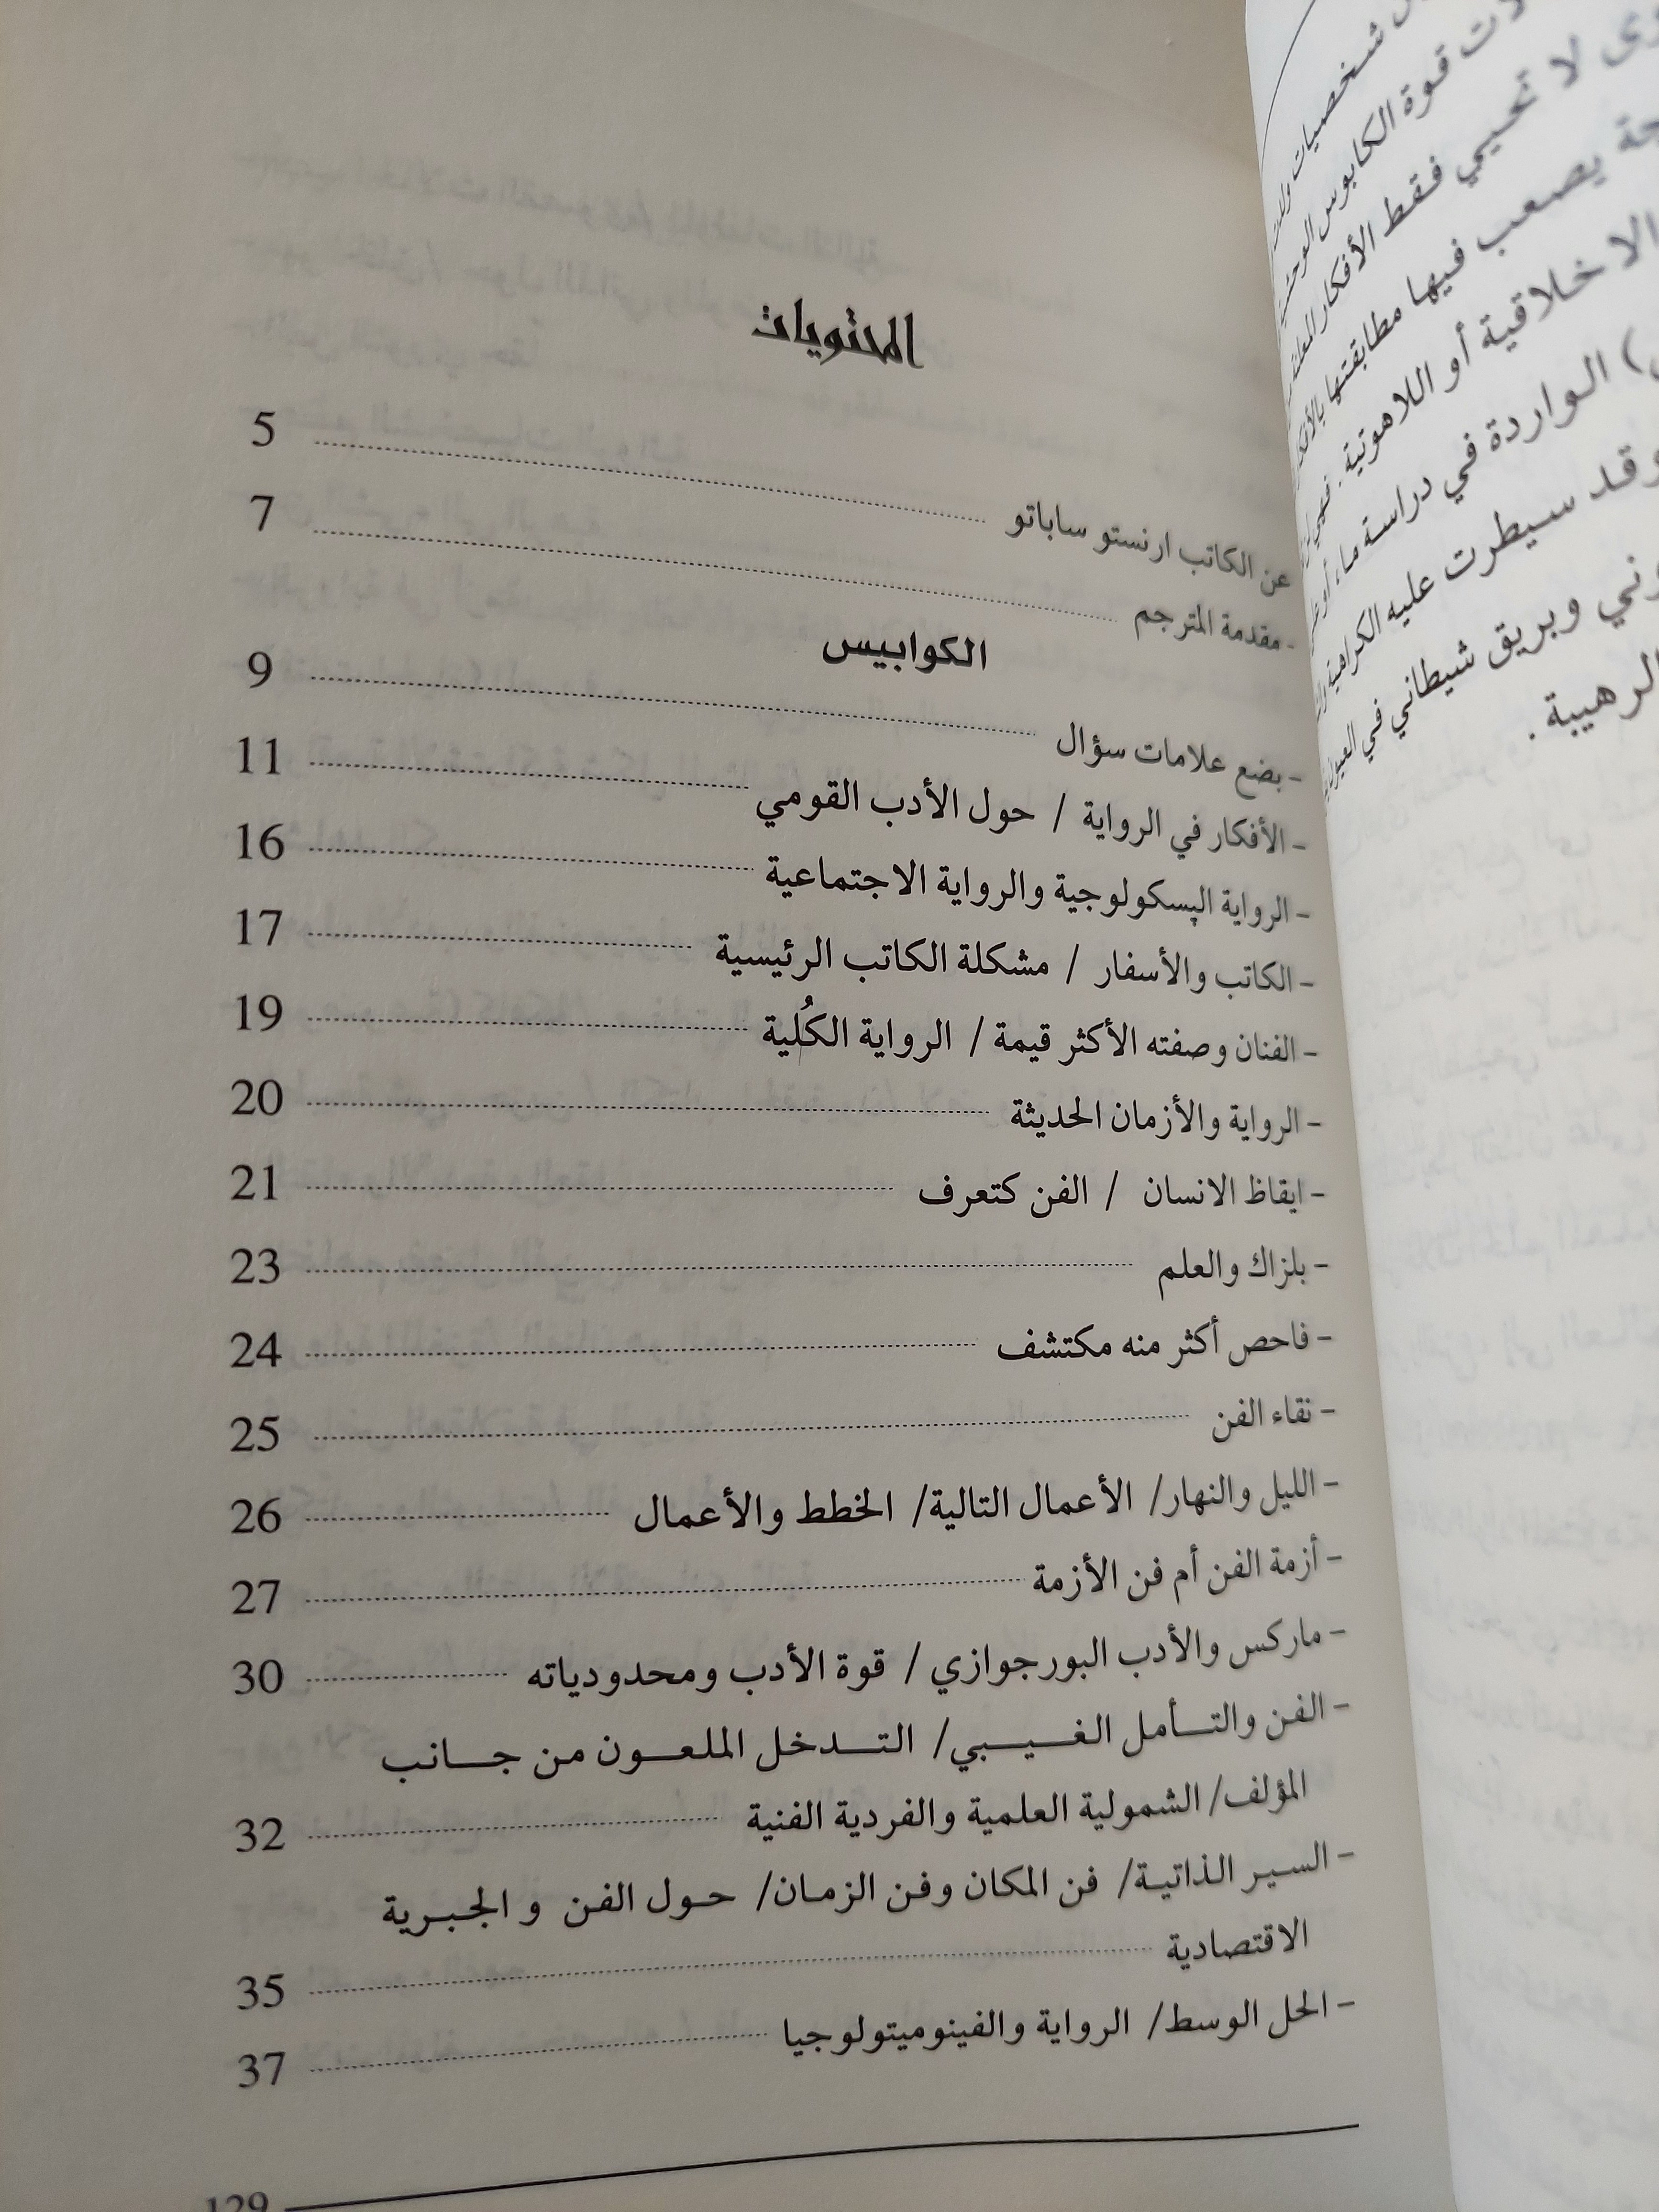 المحتويات
عن الكاتب ارنستو ساباتو 5
- مقدمة المترجم 7
الكوابيس
- بضع علامات سؤال 9
- الأفكار في الرواية / حول الأدب القومي 11
- الرواية الپسكولوجية والرواية الاجتماعية 16
- الكاتب والأسفار / مشكلة الكاتب الرئيسية 17
- الفنان وصفته الأكثر قيمة / الرواية الكُلية 19
- الرواية والأزمان الحديثة 20
- ايقاظ الانسان / الفن كتعرف 21
- بلزاك والعلم 23
- فاحص أكثر منه مكتشف 24
- نقاء الفن 25
- الليل والنهار/ الأعمال التالية/ الخطط والأعمال 26
- أزمة الفن أم فن الأزمة 27
- ماركس والأدب البورجوازي / قوة الأدب ومحدودياته 30
- الفن والتأمل الغيبي/ التدخل الملعون من جانب
المؤلف/ الشمولية العلمية والفردية الفنية 32
- السير الذاتية/ فن المكان وفن الزمان/ حول الفن و الجبرية
الاقتصادية 35
- الحل الوسط/ الرواية والفينوميتولوجيا 37
129
شخصيات
قوة الكابوس
لا تحيي فقط الأفكار
يصعب فيها مطابقتها
الاخلاقية أو اللاهوتية .
) الواردة في دراسة ما،
وقد سيطرت عليه الكراهية
وبريق شيطاني في
الرهيبة .